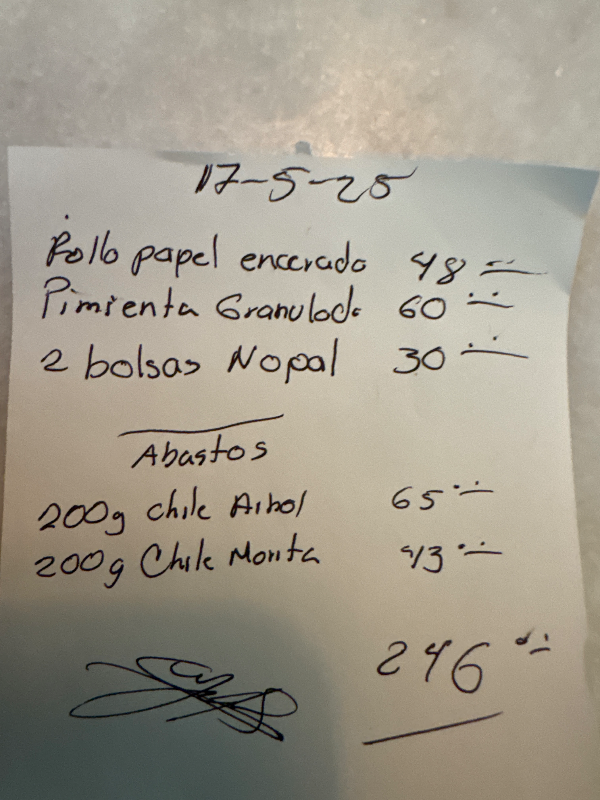 17-5-25
Rollo papel encerado 48
Pimienta Granulada 60
2 bolsas Nopal 30
Abastos
200g chile Arbol 65
200g Chile Morita 43
246